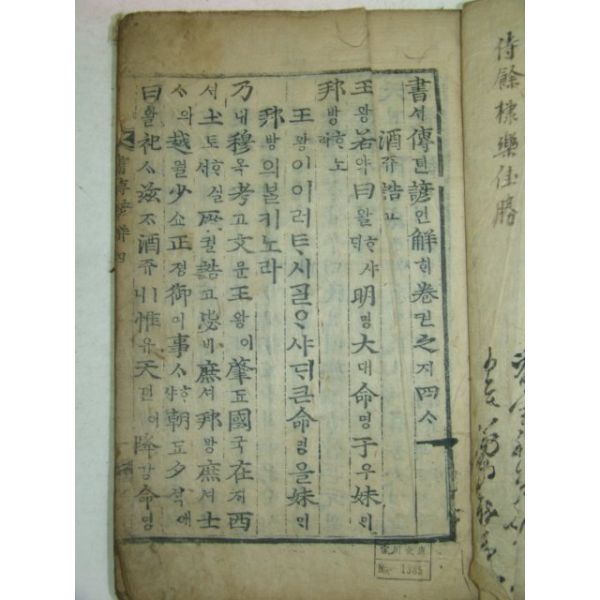 侍餘棣樂佳勝
書셔傳뎐諺언解ᄒᆡ卷권之지四ᄉᆞ
酒쥬誥고
王왕若약曰왈ᄒᆞ샤ᄃᆡ明명大대命명于우妹ᄆᆡ
邦방ᄒᆞ노라
王왕이이러ᄐᆞ시ᄀᆞᆯᄋᆞ샤ᄃᆡ큰命명을妹ᄆᆡ
邦방의ᄇᆞᆯ키노라
乃내穆목考고文문王왕이肇됴國국在ᄌᆡ西
셔土토ᄒᆞ실ᄉᆡ厥궐誥고毖비庶셔邦방庶셔士
ᄉᆞ越월少쇼正졍御어事ᄉᆞᄒᆞ샤朝됴夕셕애
曰왈祀ᄉᆞ茲ᄌᆞ酒쥬ㅣ니惟유天텬이降강命명
書傳諺解四
No. 1385